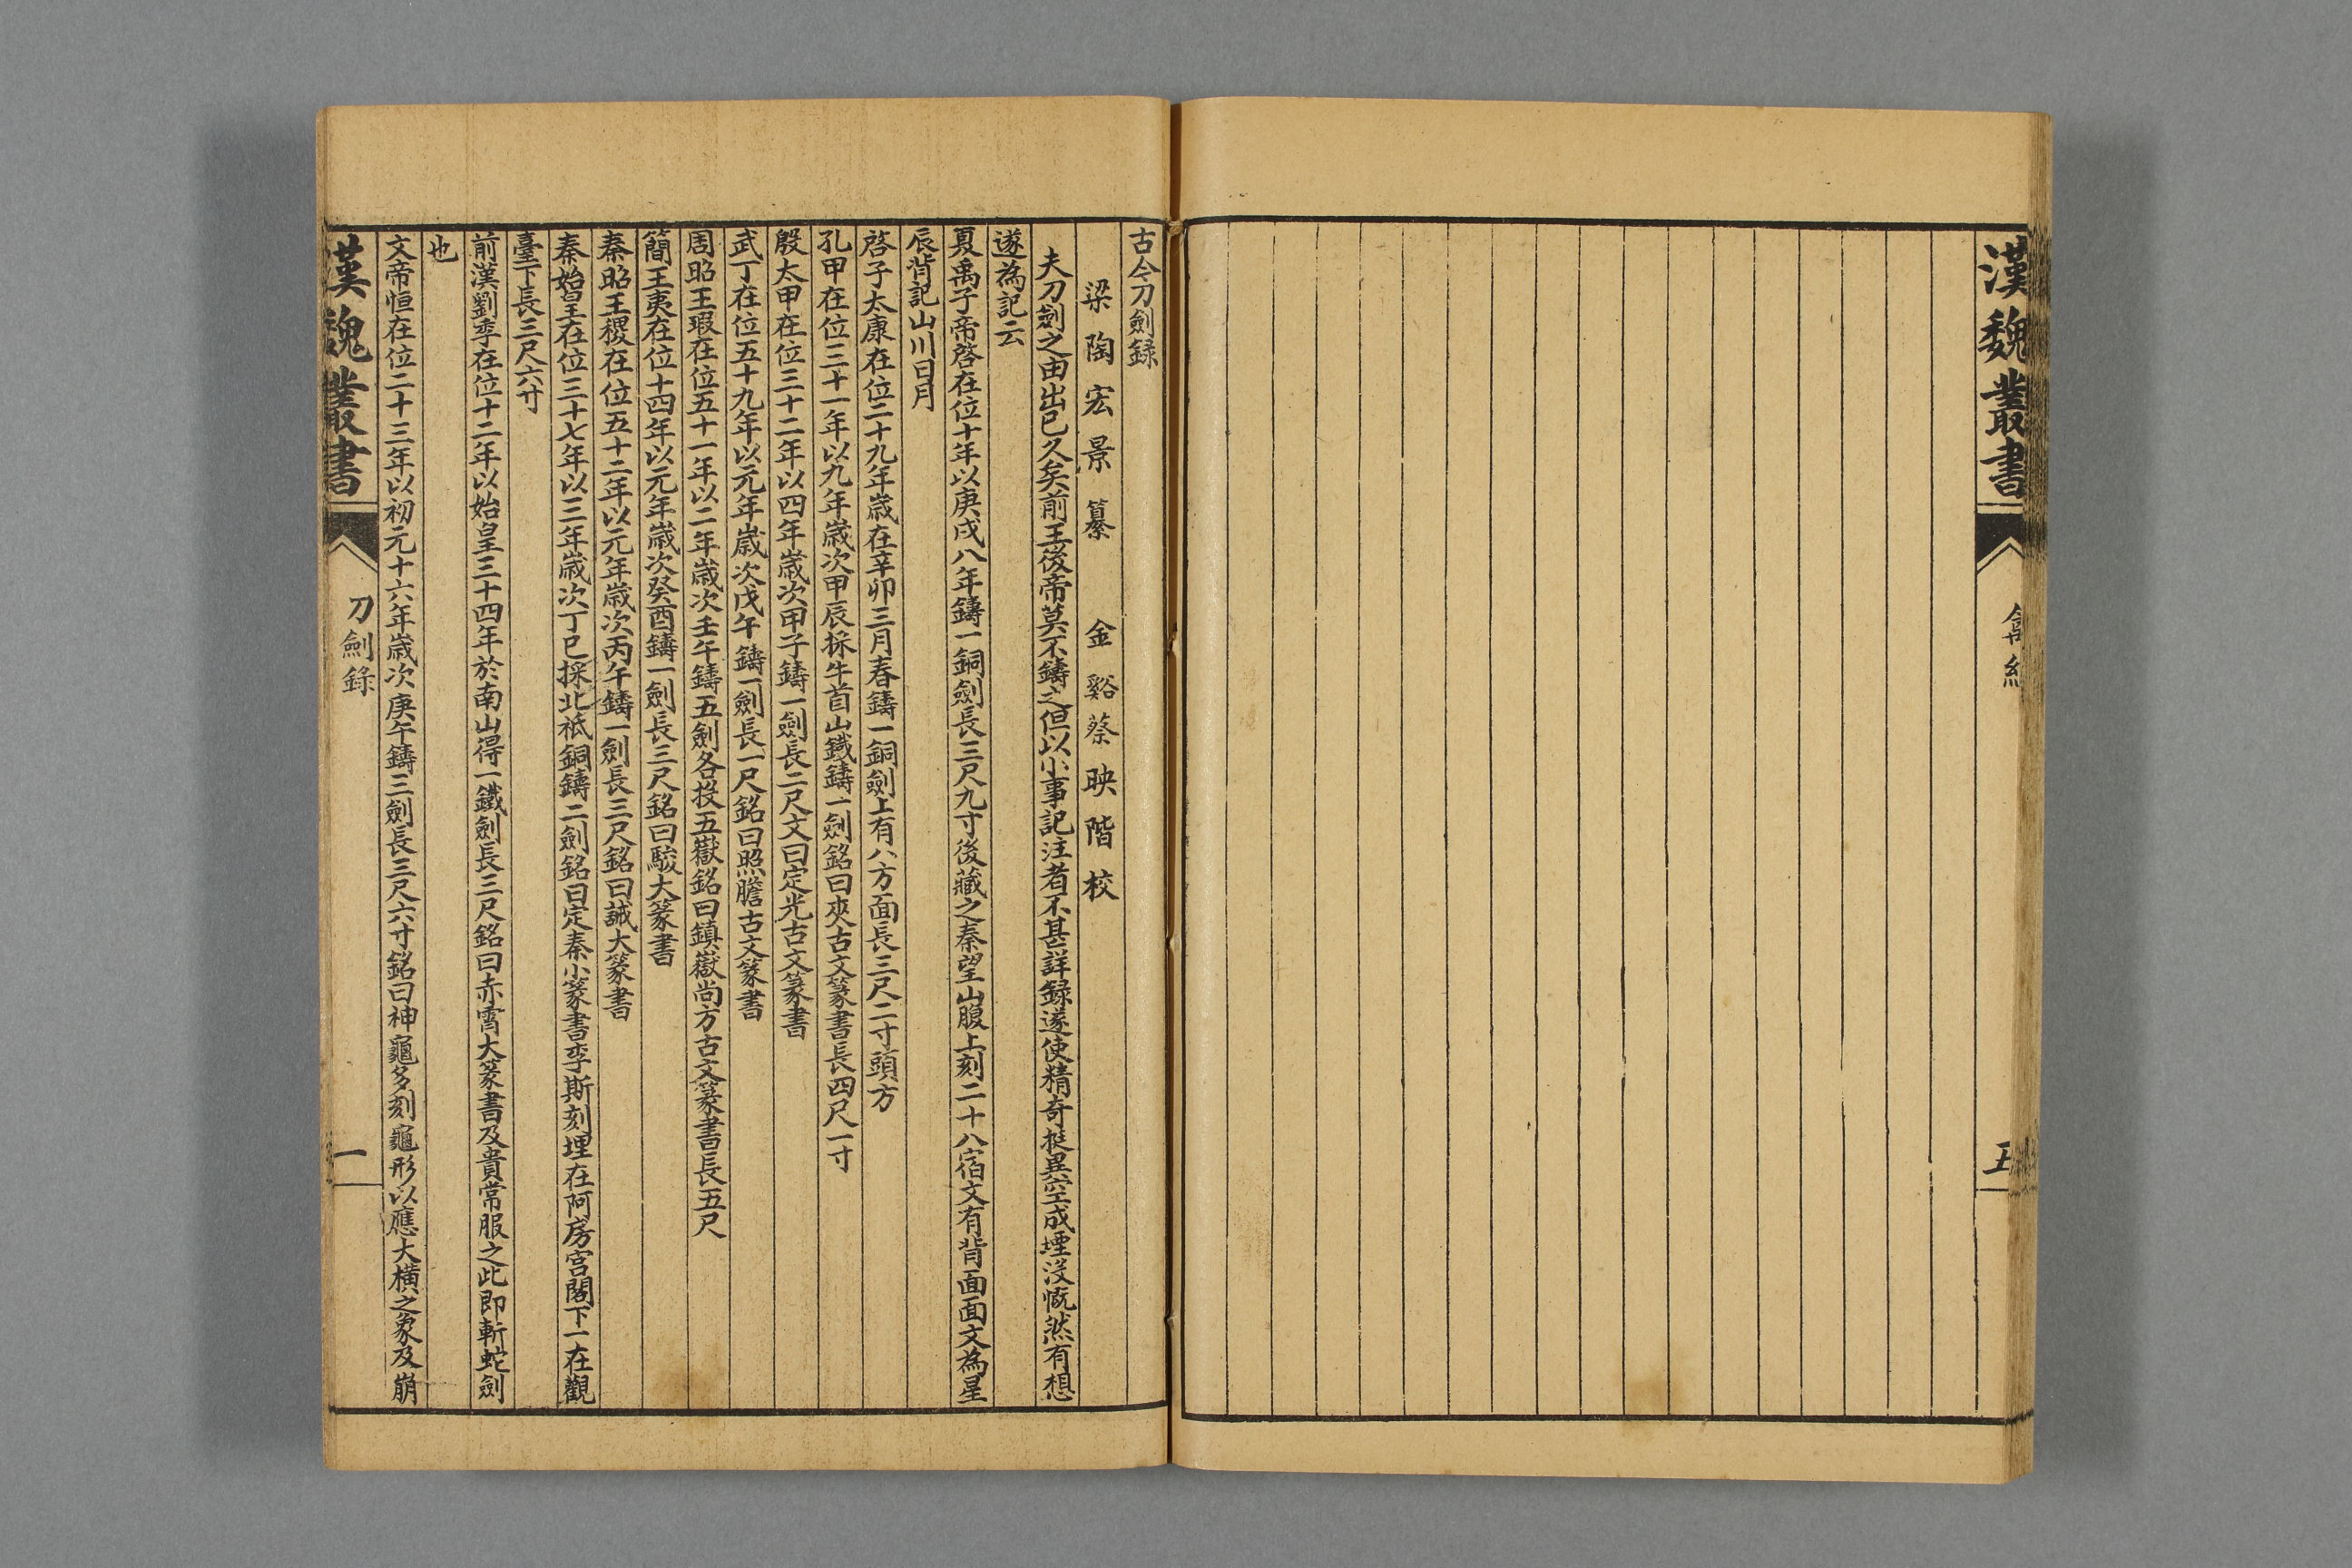 漢魏叢書
五
古今刀劍録
梁陶宏景纂　金谿蔡映階校
夫刀劍之由出已久矣前王後帝莫不鑄之但以小事記注者不甚詳録遂使精奇挺異空成堙沒慨然有想
遂為記云
夏禹子帝啓在位十年以庚戌八年鑄一銅劍長三尺九寸後藏之秦望山腹上刻二十八宿文有背面面文為星
辰背記山川日月
啓子太康在位二十九年歲在辛卯三月春鑄一銅劍上有八方面長三尺二寸頭方
孔甲在位三十一年以九年歲次甲辰採牛首山鐵鑄一劍銘曰夾古文篆書長四尺一寸
殷太甲在位三十二年以四年歲次甲子鑄一劍長二尺文曰定光古文篆書
武丁在位五十九年以元年歲次戊午鑄一劍長一尺銘曰照膽古文篆書
周昭王瑕在位五十一年以二年歲次壬午鑄五劍各投五嶽銘曰鎮嶽尚方古文篆書長五尺
簡王夷在位十四年以元年歲次癸酉鑄一劍長三尺銘曰駿大篆書
秦昭王稷在位五十二年以元年歲次丙午鑄一劍長三尺銘曰誡大篆書
秦始皇在位三十七年以三年歲次丁巳採北祗銅鑄二劍銘曰定秦小篆書李斯刻埋在阿房宮閣下一在觀
臺下長三尺六寸
前漢劉季在位十二年以始皇三十四年於南山得一鐵劍長三尺銘曰赤霄大篆書及貴常服之此即斬蛇劍
也
文帝恒在位二十三年以初元十六年歲次庚午鑄三劍長三尺六寸銘曰神龜多刻龜形以應大橫之象及崩
漢魏叢書
刀劍錄
一